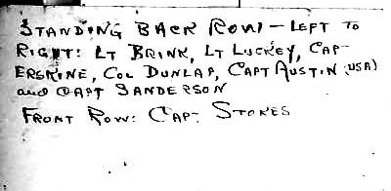 STANDING BACK ROW — LEFT TO
RIGHT: LT BRINK, LT LUCKEY, CAP-
ERSKINE, COL DUNLAP, CAPT AUSTIN (USA)
and CAPT SANDERSON
FRONT ROW: CAP- STOKES